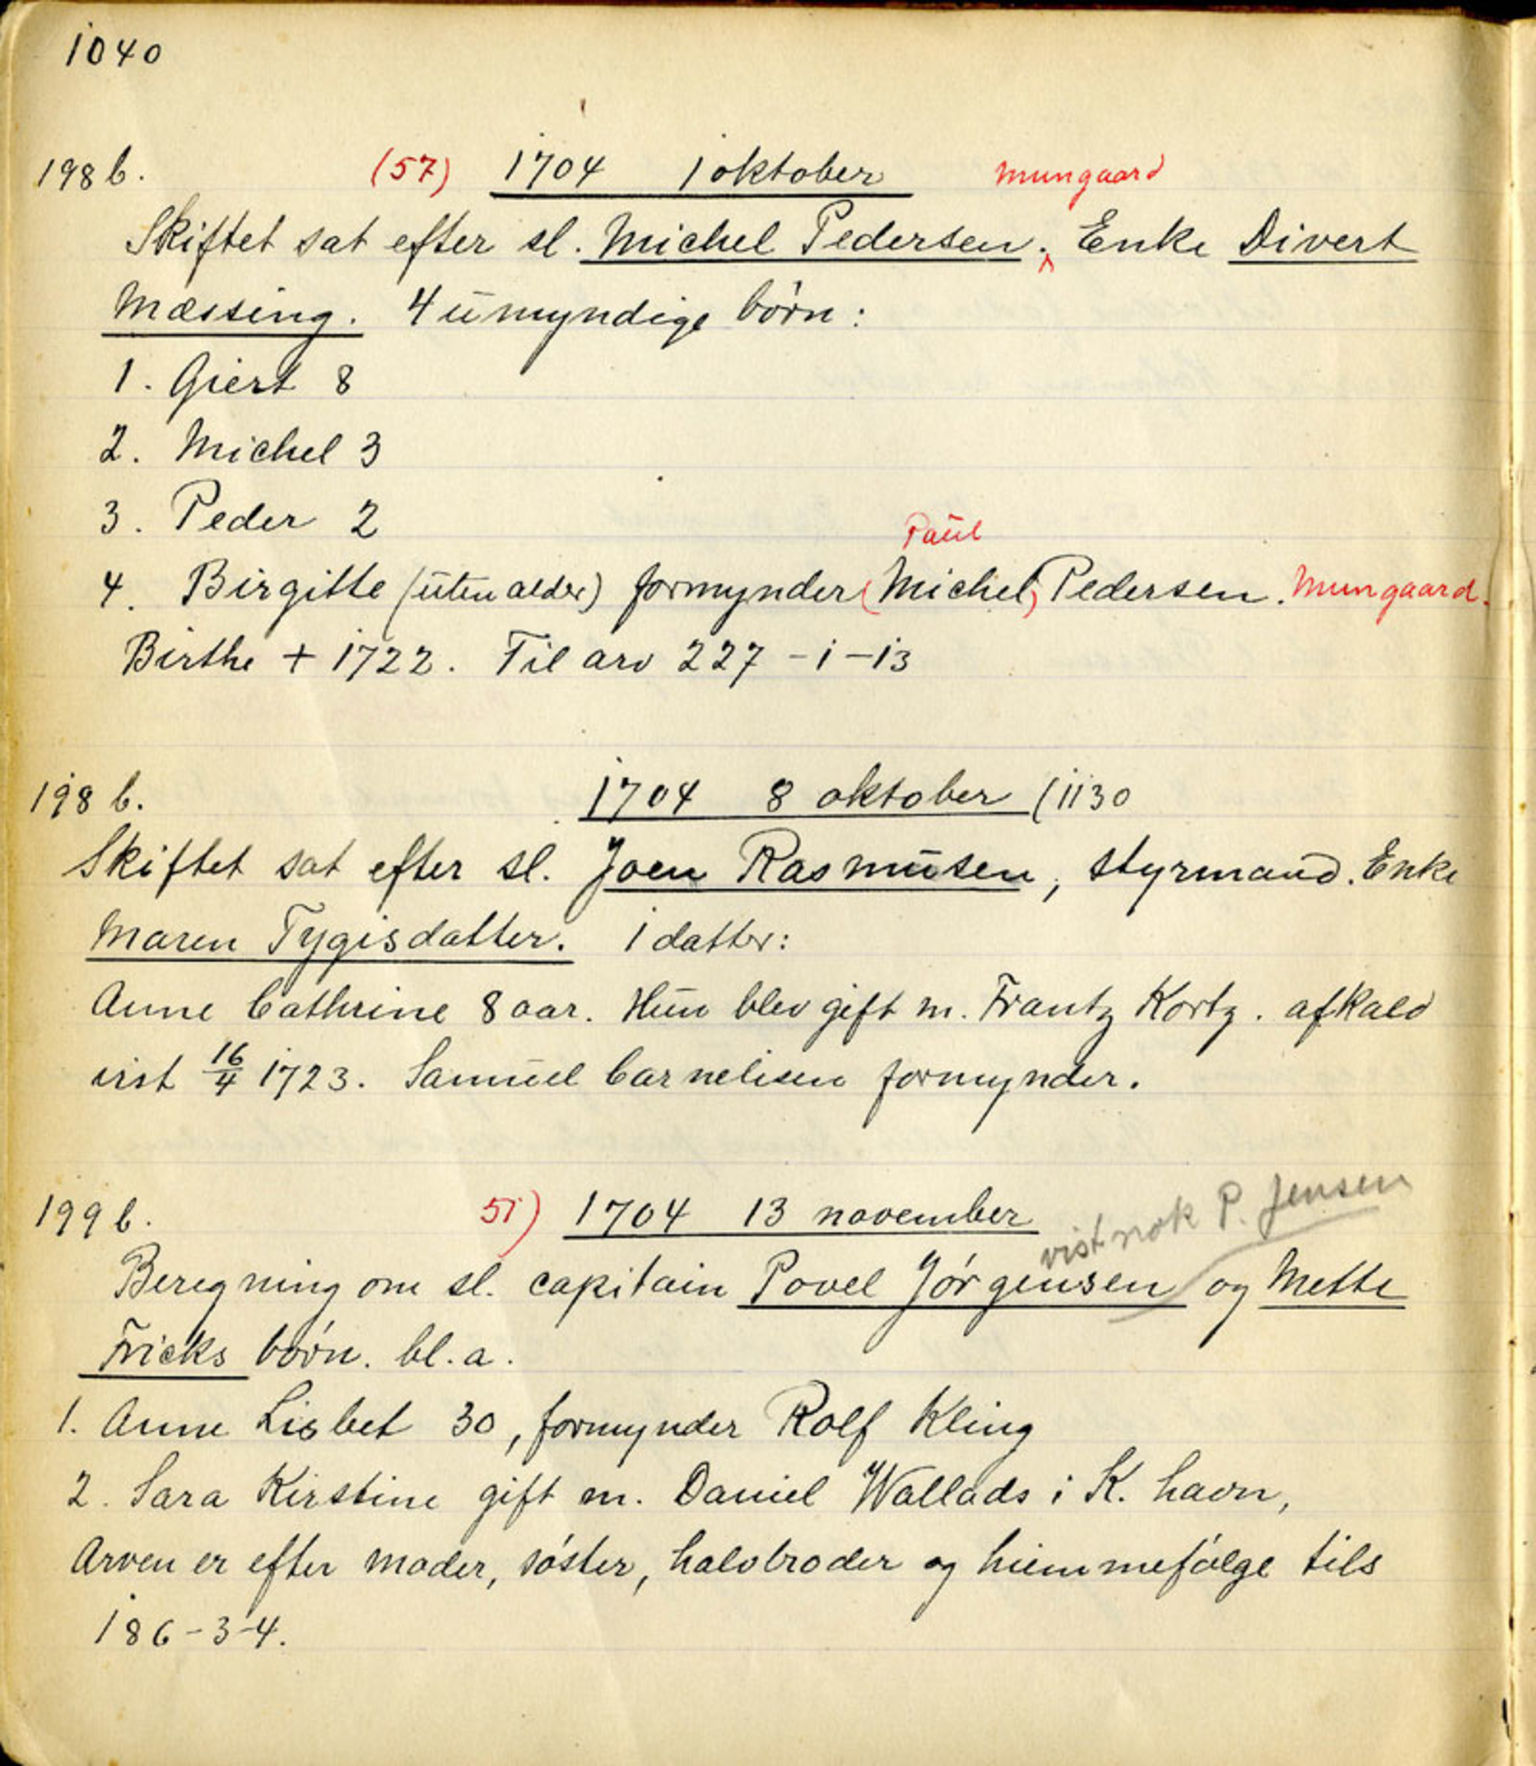 1040
198 b. (57) 1704 1 oktober Mungaard
Skiftet sat efter sl. Michel Pedersen. Enke Divert
Mæssing. 4 umyndige børn:
1. Giert 8
2. Michel 3
3. Peder 2
Paul
4. Birgitte (uten alder) formynder (Michel) Pedersen. Mungaard.
Birthe + 1722. Til arv 227-1-13
198 b. 1704 8 oktober (1130
Skiftet sat efter sl. Joen Rasmusen, styrmand. Enke
Maren Tygisdatter. 1 datter:
Anne Cathrine 8 aar. Hun blev gift m. Frantz Kortz. afkald
vist 16/4 1723. Samuel Carnelisen formynder.
199 b. 51) 1704 13 november
vist nok P. Jensen
Beregning om sl. capitain Povel Jørgensen og Mette
Fricks børn. bl.a.
1. Anne Lisbet 30, formynder Rolf Kling
2. Sara Kirstine gift m. Daniel Wallads i K. havn,
Arven er efter moder, søster, halvbroder og hiemmefølge tils
186-3-4.